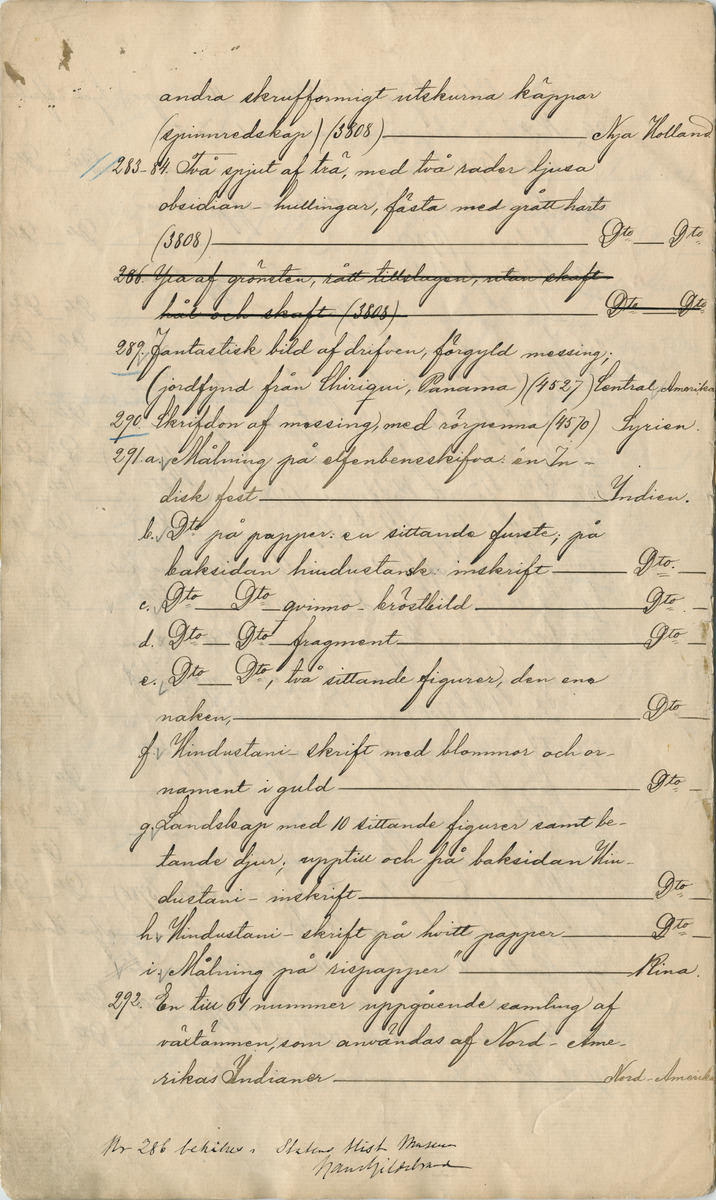 andra skrufformigt utskurna käppar
(spinnredskap) (3808) Nya Holland
283-84. Två spjut af trä, med två rader ljusa
obsidian-hullingar, fästa med grått harts
(3808) Dto Dto
286. Yxa af grönsten, rått tillslagen, utan skaft
hål och skaft (3808) Dto Dto
289. Fantastisk bild af drifven, förgyld messing;
(jordfynd från Chiriqui, Panama) (4527) Central Amerika
290. Skrifdon af messing, med rörpenna (4570) Syrien.
291. a. Målning på elfenbensskifva: en In-
disk fest Indien.
b. Dto på papper: en sittande furste; på
baksidan hindustansk inskrift Dto.
c. Dto Dto qvinno-bröstbild Dto.
d. Dto Dto fragment Dto
e. Dto Dto, två sittande figurer, den ene
naken, Dto
f. Hindustani-skrift med blommor och or-
nament i guld Dto
g. Landskap med 10 sittande figurer samt be-
tande djur; upptill och på baksidan Hin-
dustani-inskrift Dto
h. Hindustani-skrift på hvitt papper Dto
i. Målning på "rispapper" Kina.
292. En till 61 nummer uppgående samling af
växtämnen, som användas af Nord-Ame-
rikas Indianer Nord-Amerika
Nr 286 Statens Hist Museum
Hans Hildebrand